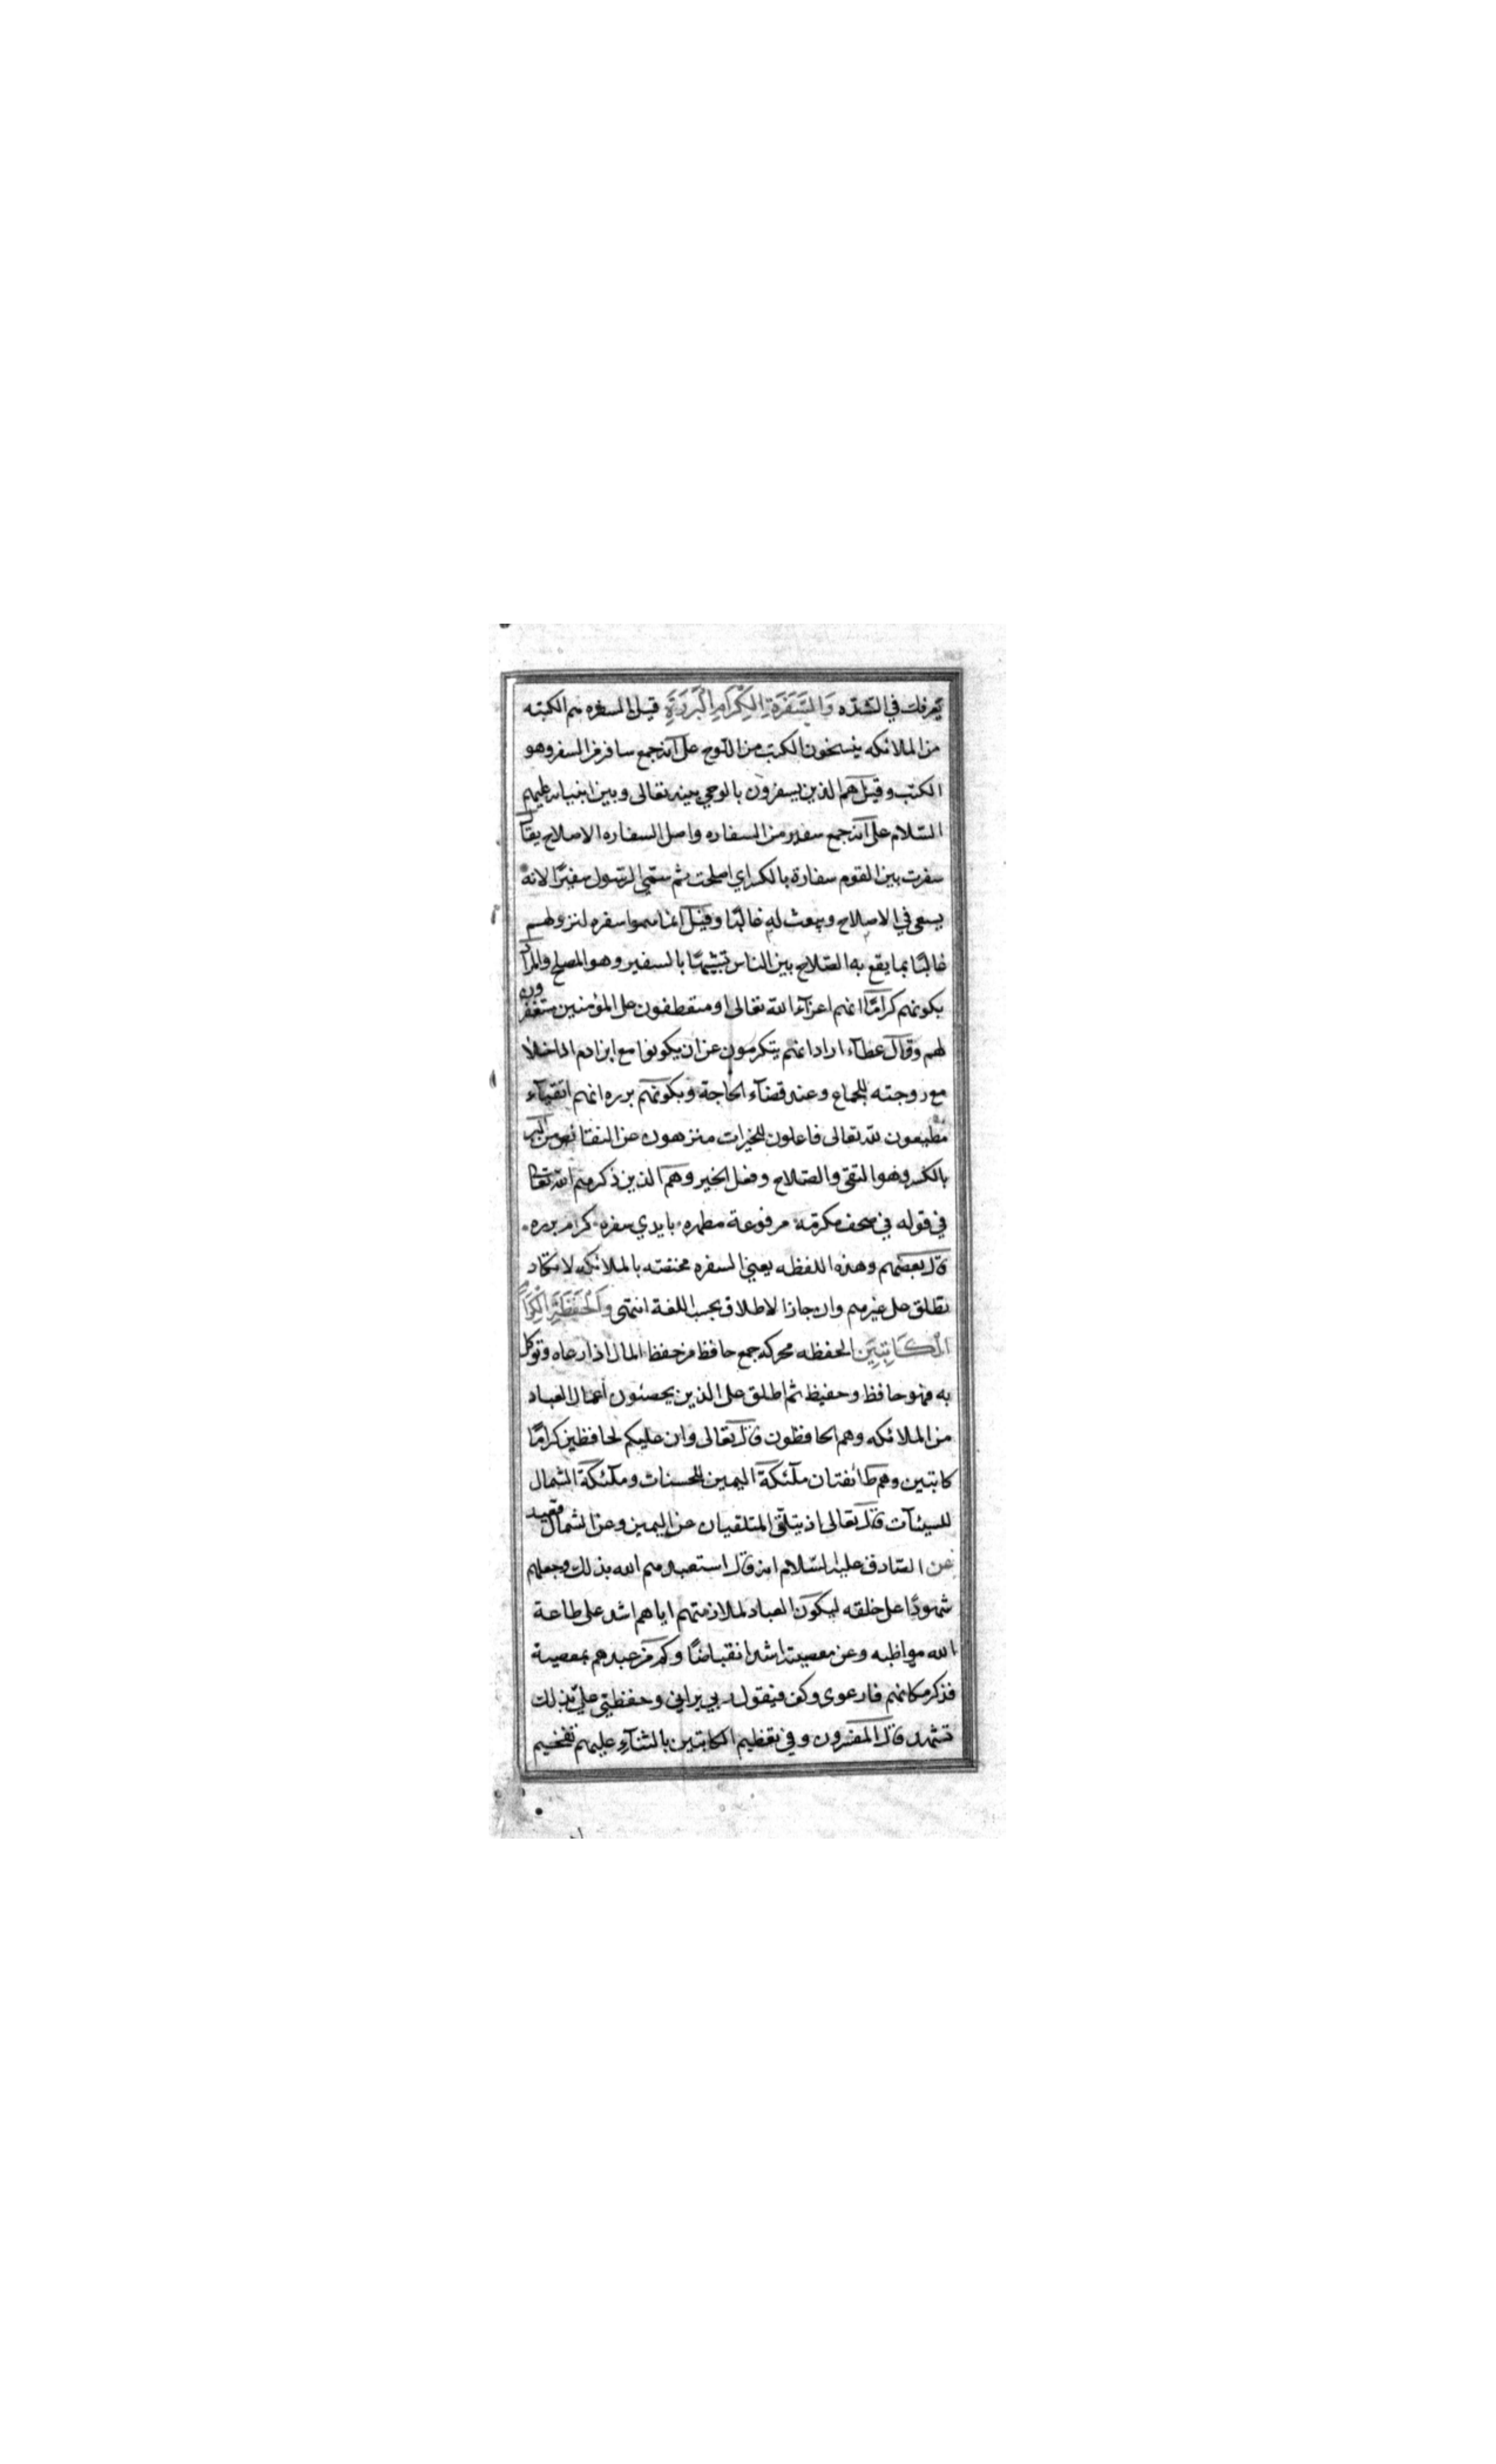 يعرفك في الشدّه وَالسَّفَرَةِ الكِرَامِ الْبَرَرَةِ قيل السفره هم الكتبه
من الملائكه ينسخون الكتب من اللوح على انه جمع سافر من السفر وهو
الكتب وقيل هم الذين يسفرون بالوحي بينه تعالى وبين انبيائه عليهم
السّلام على انه جمع سفير من السفاره واصل السفاره الاصلاح يقال
سفرت بين القوم سفارة بالكسر اي اصلحت ثم سمّي الرسول سفيرًا لانه
يسعى في الاصلاح ويبعث له غالبًا وقيل انما سموا سفره لنزولهم
غالبًا بما يقع به الصّلاح بين الناس تشبيهًا بالسفير وهو المصلح والمراد
بكونهم كرامًا انهم اعزّاء الله تعالى او متعطفون على المؤمنين مستغفرون
لهم وقال عطاء اراد انهم يتكرمون عن ان يكونوا مع ابن ادم اذا خلا
مع زوجته للجماع وعند قضآء الحاجة وبكونهم برره انهم اتقيآء
مطيعون لله تعالى فاعلون للخيرات منزهون عن النقائص من البر
بالكسر وهو التقى والصلاح وفعل الخير وهم الذين ذكرهم الله تعالى
في قوله في صحف مكرمّه مرفوعة مطهره بايدي سفره كرام برره
قال بعضهم وهذه اللفظه يعني السفره مختصه بالملائكه لا تكاد
تطلق على غيرهم وان جاز الاطلاق بحسب اللغة انتهى وَالْحَفَظَةِ الْكِرَامِ
الْكَاتِبِينَ الحفظه محركه جمع حافظ من حفظ المال اذا رعاه وتوكل
به فهو حافظ وحفيظ ثم اطلق على الذين يحصنون أعمال العباد
من الملائكه وهم الحافظون قال تعالى وان عليكم لحافظين كرامًا
كاتبين وهم طائفتان ملئكة اليمين للحسنات وملئكة الشمال
للسيئآت قال تعالى اذ يتلقّى المتلقيان عن اليمين وعن الشمال قعيد
عن الصّادق عليه السّلام انه قال استعبدهم الله بذلك وجعلهم
شهودًا على خلقه ليكون العباد لملازمتهم اياهم اشد على طاعة
الله مواظبه وعن معصيته اشد انقباضًا وكم من عبد هم بمعصية
فذكر مكانهم فارعوى وكف فيقول ربي يراني وحفظتي عليّ بذلك
تشهد قال المفسرون وفي تعظيم الكاتبين بالثنآء عليهم تفخيم